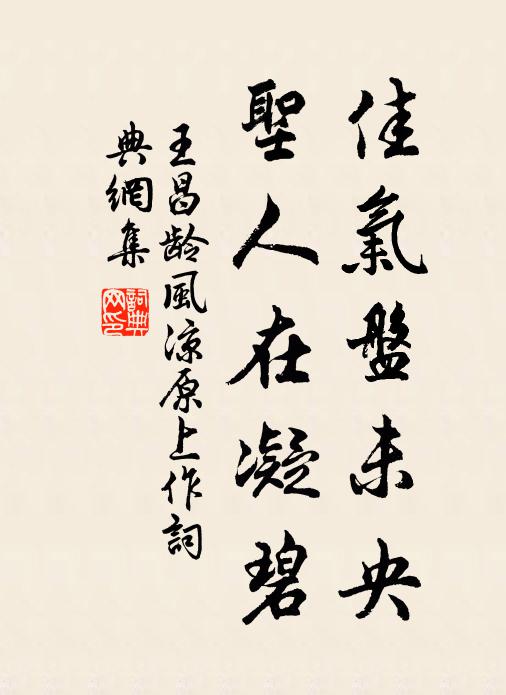 佳氣盤未央
聖人在凝碧
王昌齡風涼原上作詞
典網集
詞典網印